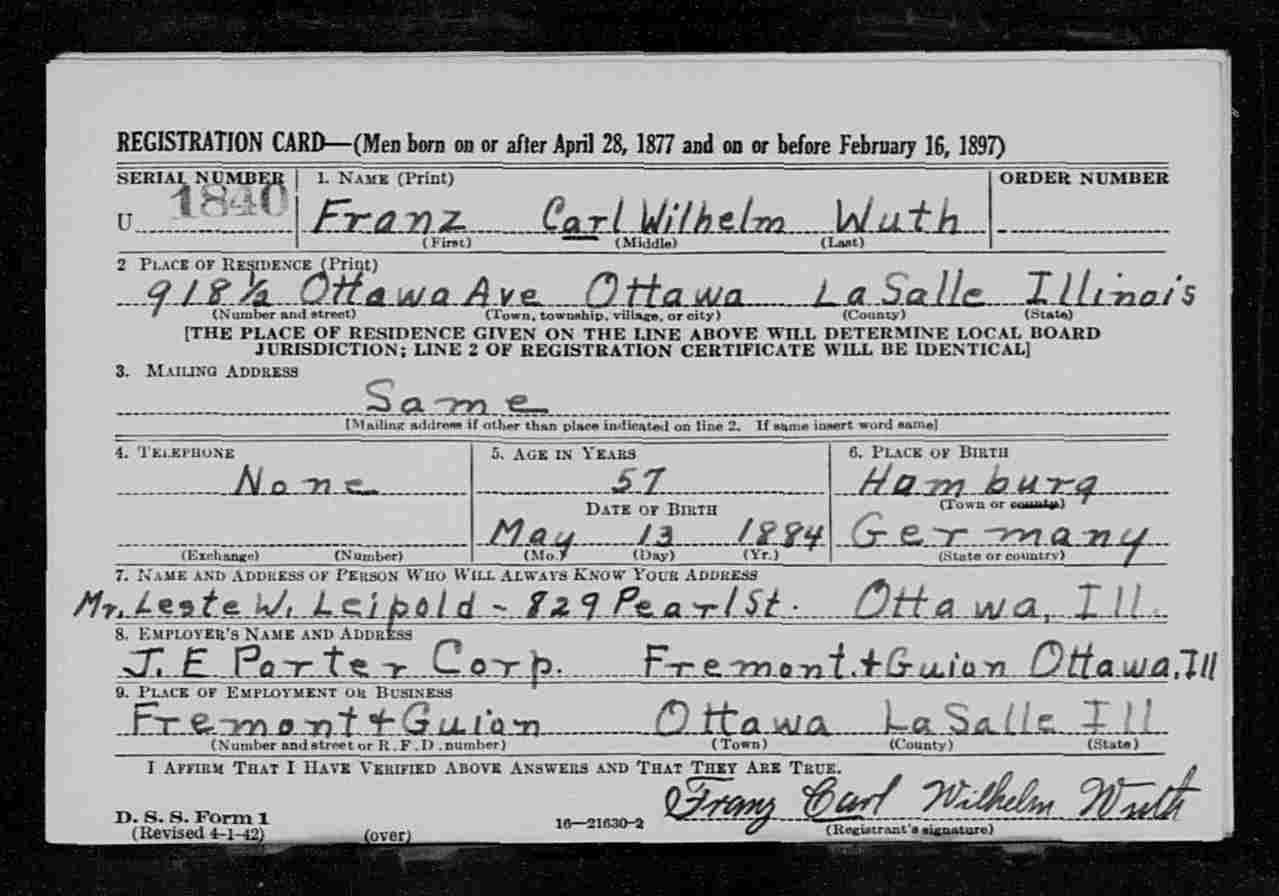 REGISTRATION CARD—(Men born on or after April 28, 1877 and on or before February 16, 1897)
SERIAL NUMBER 1. NAME (Print) ORDER NUMBER
U 1840 Franz Carl Wilhelm Wuth
(First) (Middle) (Last)
2 PLACE OF RESIDENCE (Print)
918 1/2 Ottawa Ave Ottawa LaSalle Illinois
(Number and street) (Town, township, village, or city) (County) (State)
[THE PLACE OF RESIDENCE GIVEN ON THE LINE ABOVE WILL DETERMINE LOCAL BOARD
JURISDICTION; LINE 2 OF REGISTRATION CERTIFICATE WILL BE IDENTICAL]
3. MAILING ADDRESS
Same
[Mailing address if other than place indicated on line 2. If same insert word same]
4. TELEPHONE 5. AGE IN YEARS 6. PLACE OF BIRTH
None 57 Hamburg
DATE OF BIRTH (Town or county)
May 13 1884 Germany
(Exchange) (Number) (Mo.) (Day) (Yr.) (State or country)
7. NAME AND ADDRESS OF PERSON WHO WILL ALWAYS KNOW YOUR ADDRESS
Mr. Leste W. Leipold - 829 Pearl St. Ottawa, Ill.
8. EMPLOYER'S NAME AND ADDRESS
J. E Porter Corp. Fremont. + Guion Ottawa. Ill
9. PLACE OF EMPLOYMENT OR BUSINESS
Fremont + Guion Ottawa LaSalle Ill
(Number and street or R. F. D. number) (Town) (County) (State)
I AFFIRM THAT I HAVE VERIFIED ABOVE ANSWERS AND THAT THEY ARE TRUE.
Franz Carl Wilhelm Wuth
D. S. S. Form 1
(Revised 4-1-42) (over) 16—21630-2 (Registrant's signature)